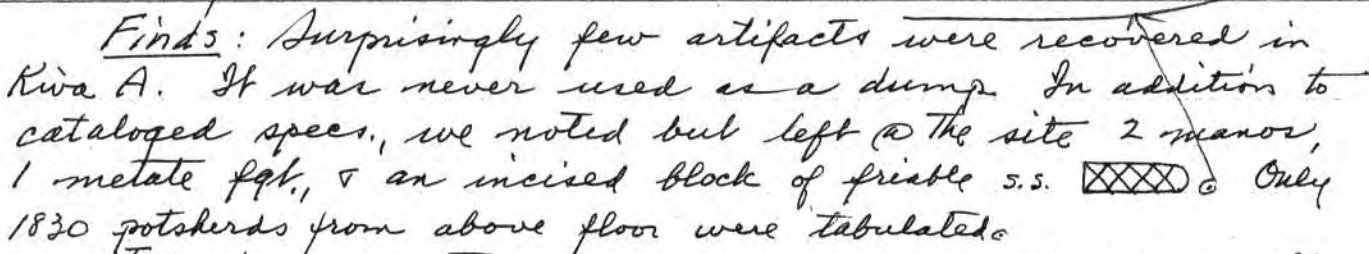 Finds: Surprisingly few artifacts were recovered in
Kiva A. It was never used as a dump. In addition to
cataloged specs., we noted but left @ the site 2 manos,
1 metate fgt., & an incised block of friable s.s. Only
1830 potsherds from above floor were tabulated.